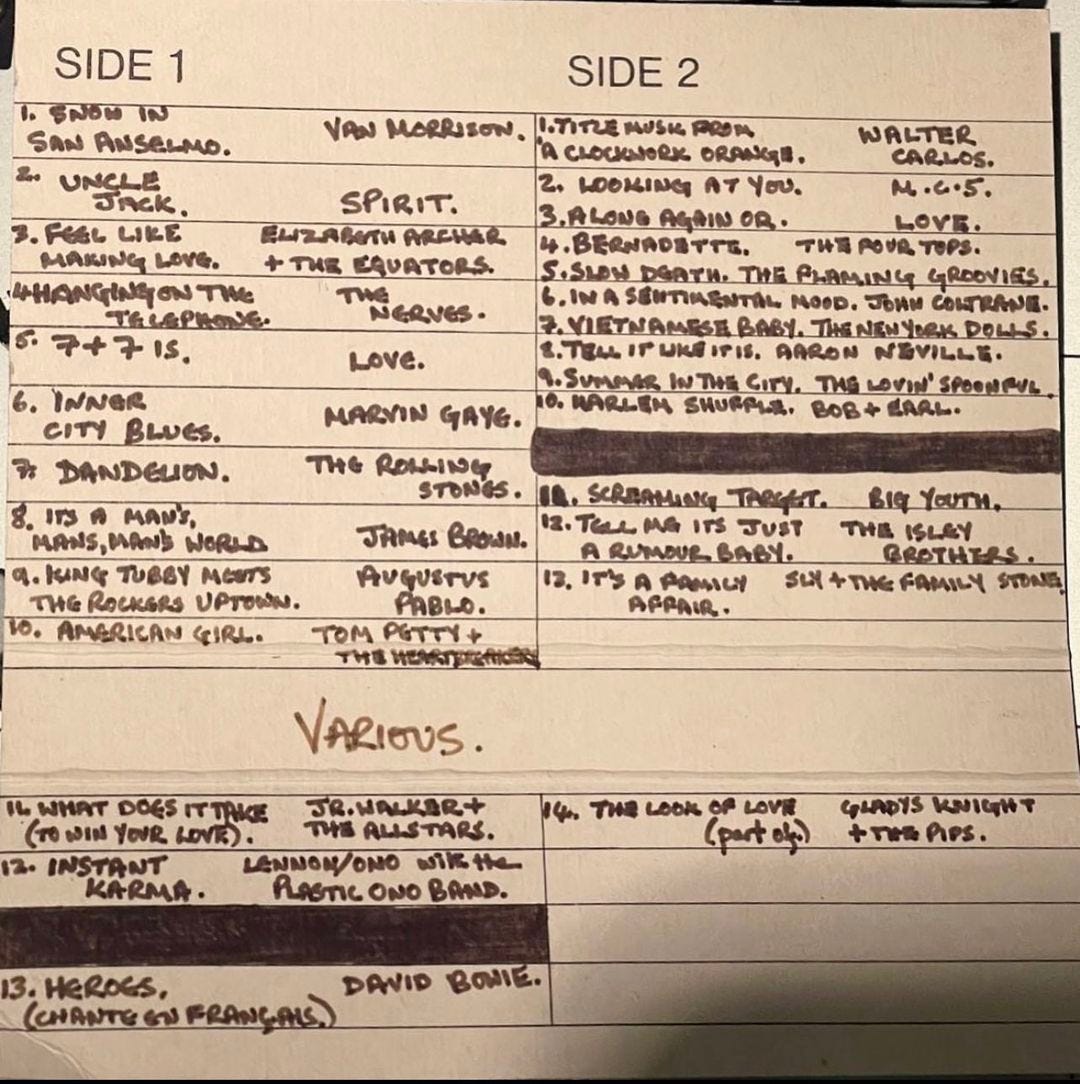 SIDE 1
1. SNOW IN
SAN ANSELMO. VAN MORRISON.
2. UNCLE
JACK. SPIRIT.
3. FEEL LIKE ELIZABETH ARCHER
MAKING LOVE. + THE EQUATORS.
4. HANGING ON THE THE
TELEPHONE. NERVES.
5. 7+7 IS. LOVE.
6. INNER
CITY BLUES. MARVIN GAYE.
7. DANDELION. THE ROLLING
STONES.
8. ITS A MAN'S,
MANS, MAN'S WORLD JAMES BROWN.
9. KING TUBBY MEETS AUGUSTUS
THE ROCKERS UPTOWN. PABLO.
10. AMERICAN GIRL. TOM PETTY +
THE HEARTBREAKERS
SIDE 2
1. TITLE MUSIC FROM WALTER
'A CLOCKWORK ORANGE. CARLOS.
2. LOOKING AT YOU. M.C.5.
3. ALONG AGAIN OR. LOVE.
4. BERNADETTE. THE FOUR TOPS.
5. SLOW DEATH. THE FLAMING GROOVIES.
6. IN A SENTIMENTAL MOOD. JOHN COLTRANE.
7. VIETNAMESE BABY. THE NEW YORK DOLLS.
8. TELL IT LIKE IT IS. AARON NEVILLE.
9. SUMMER IN THE CITY. THE LOVIN' SPOONFUL.
10. HARLEM SHUFFLE. BOB + EARL.
11. SCREAMING TARGET. BIG YOUTH.
12. TELL ME ITS JUST THE ISLEY
A RUMOUR BABY. BROTHERS.
13. IT'S A FAMILY SLY + THE FAMILY STONE.
AFFAIR.
VARIOUS.
11. WHAT DOES IT TAKE JR. WALKER +
(TO WIN YOUR LOVE). THE ALLSTARS.
12. INSTANT LENNON/ONO with the
KARMA. PLASTIC ONO BAND.
13. HEROES, DAVID BOWIE.
(CHANTE EN FRANÇAIS.)
14. THE LOOK OF LOVE GLADYS KNIGHT
(part of.) + THE PIPS.